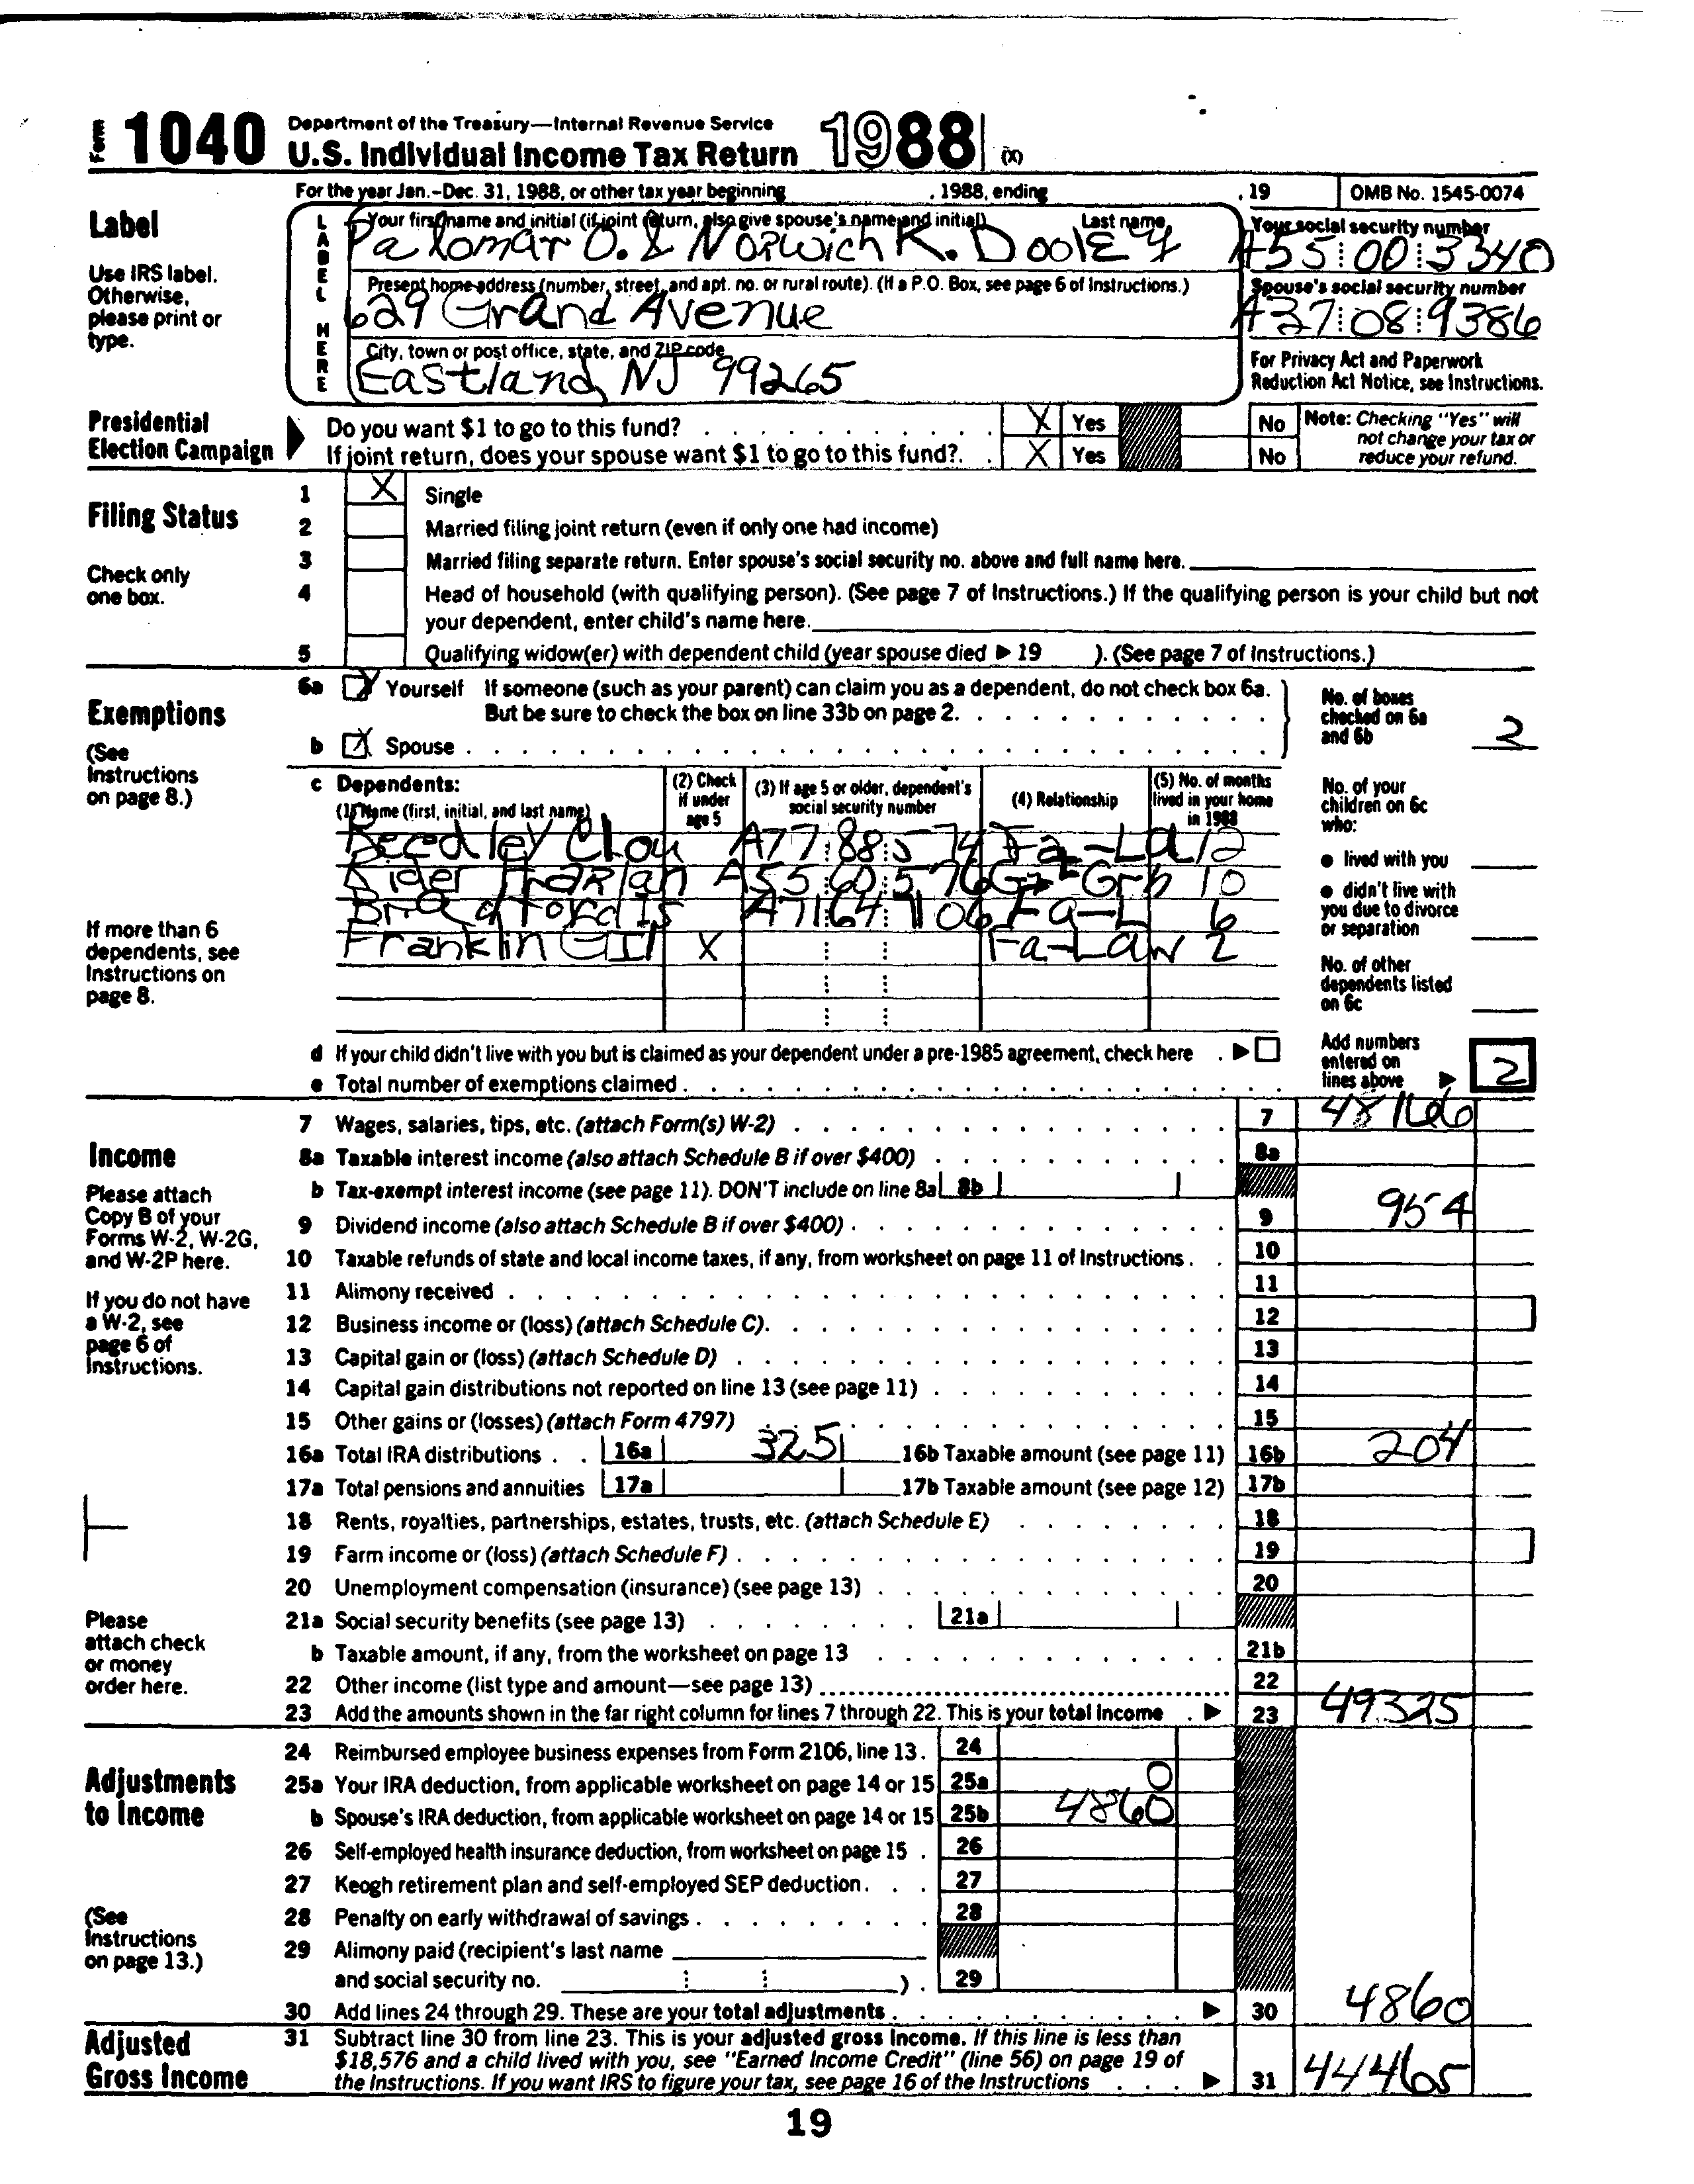 Form 1040 Department of the Treasury—Internal Revenue Service
U.S. Individual Income Tax Return 1988 (X)
For the year Jan.-Dec. 31, 1988, or other tax year beginning , 1988, ending , 19 OMB No. 1545-0074
Label
Use IRS label. Otherwise, please print or type.
LABEL HERE
Your first name and initial (if joint return, also give spouse's name and initial) Last name Your social security number
Palomar O. & Norwich K. Dooley A55 00 3340
Present home address (number, street, and apt. no. or rural route). (If a P.O. Box, see page 6 of Instructions.) Spouse's social security number
629 Grand Avenue A37 08 9386
City, town or post office, state, and ZIP code
Eastland, NJ 99265
For Privacy Act and Paperwork Reduction Act Notice, see Instructions.
Presidential Election Campaign
Do you want $1 to go to this fund? X Yes No
If joint return, does your spouse want $1 to go to this fund? X Yes No
Note: Checking "Yes" will not change your tax or reduce your refund.
Filing Status
Check only one box.
1 X Single
2 Married filing joint return (even if only one had income)
3 Married filing separate return. Enter spouse's social security no. above and full name here.
4 Head of household (with qualifying person). (See page 7 of Instructions.) If the qualifying person is your child but not
your dependent, enter child's name here.
5 Qualifying widow(er) with dependent child (year spouse died ▶ 19 ). (See page 7 of Instructions.)
Exemptions
(See Instructions on page 8.)
6a X Yourself If someone (such as your parent) can claim you as a dependent, do not check box 6a.
But be sure to check the box on line 33b on page 2.
b X Spouse
No. of boxes checked on 6a and 6b 2
c Dependents:
(1) Name (first, initial, and last name) (2) Check if under age 5 (3) If age 5 or older, dependent's social security number (4) Relationship (5) No. of months lived in your home in 1988
A77 88 574 12
10
6
Franklin Gil X Fa-Law 2
If more than 6 dependents, see Instructions on page 8.
No. of your children on 6c who:
● lived with you
● didn't live with you due to divorce or separation
No. of other dependents listed on 6c
d If your child didn't live with you but is claimed as your dependent under a pre-1985 agreement, check here ▶
e Total number of exemptions claimed
Add numbers entered on lines above ▶ 2
Income
Please attach Copy B of your Forms W-2, W-2G, and W-2P here.
If you do not have a W-2, see page 6 of Instructions.
Please attach check or money order here.
7 Wages, salaries, tips, etc. (attach Form(s) W-2) 7 48166
8a Taxable interest income (also attach Schedule B if over $400) 8a
b Tax-exempt interest income (see page 11). DON'T include on line 8a 8b
9 Dividend income (also attach Schedule B if over $400) 9 954
10 Taxable refunds of state and local income taxes, if any, from worksheet on page 11 of Instructions 10
11 Alimony received 11
12 Business income or (loss) (attach Schedule C) 12
13 Capital gain or (loss) (attach Schedule D) 13
14 Capital gain distributions not reported on line 13 (see page 11) 14
15 Other gains or (losses) (attach Form 4797) 15
16a Total IRA distributions 16a 325 16b Taxable amount (see page 11) 16b 204
17a Total pensions and annuities 17a 17b Taxable amount (see page 12) 17b
18 Rents, royalties, partnerships, estates, trusts, etc. (attach Schedule E) 18
19 Farm income or (loss) (attach Schedule F) 19
20 Unemployment compensation (insurance) (see page 13) 20
21a Social security benefits (see page 13) 21a
b Taxable amount, if any, from the worksheet on page 13 21b
22 Other income (list type and amount—see page 13) 22
23 Add the amounts shown in the far right column for lines 7 through 22. This is your total income ▶ 23 49325
Adjustments to Income
(See Instructions on page 13.)
24 Reimbursed employee business expenses from Form 2106, line 13. 24
25a Your IRA deduction, from applicable worksheet on page 14 or 15 25a 0
b Spouse's IRA deduction, from applicable worksheet on page 14 or 15 25b 4860
26 Self-employed health insurance deduction, from worksheet on page 15 26
27 Keogh retirement plan and self-employed SEP deduction 27
28 Penalty on early withdrawal of savings 28
29 Alimony paid (recipient's last name
and social security no. ) 29
30 Add lines 24 through 29. These are your total adjustments ▶ 30 4860
Adjusted Gross Income
31 Subtract line 30 from line 23. This is your adjusted gross income. If this line is less than
$18,576 and a child lived with you, see "Earned Income Credit" (line 56) on page 19 of
the Instructions. If you want IRS to figure your tax, see page 16 of the Instructions ▶ 31 44465
19